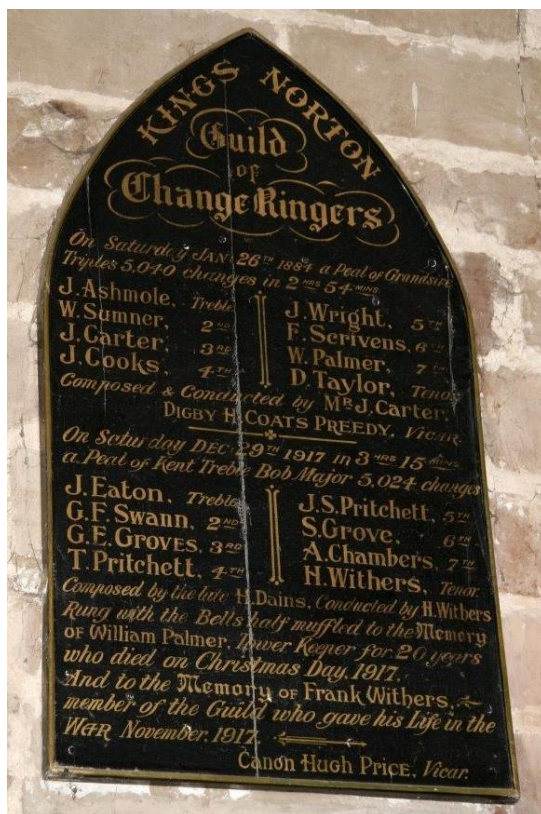 KINGS NORTON
Guild
of
Change Ringers
On Saturday JAN 26TH 1884 a Peal of Grandsire
Triples 5,040 changes in 2 HRS 54 MINS
J. Ashmole, Treble
W. Sumner, 2ND
J. Carter, 3RD
J. Cooks, 4TH
J. Wright, 5TH
F. Scrivens, 6TH
W. Palmer, 7TH
D. Taylor, Tenor
Composed & Conducted by MR J. Carter,
DIGBY H. COATS PREEDY, Vicar
On Saturday DEC 29TH 1917 in 3 HRS 15 MINS
a Peal of Kent Treble Bob Major 5,024 changes
J. Eaton, Treble
G. F. Swann, 2ND
G. E. Groves, 3RD
T. Pritchett, 4TH
J. S. Pritchett, 5TH
S. Grove, 6TH
A. Chambers, 7TH
H. Withers, Tenor
Composed by the late H. Dains, Conducted by H. Withers
Rung with the Bells half muffled to the Memory
of William Palmer, Tower Keeper for 20 years
who died on Christmas Day, 1917.
And to the Memory of Frank Withers,
member of the Guild who gave his Life in the
WAR November, 1917
Canon Hugh Price, Vicar.